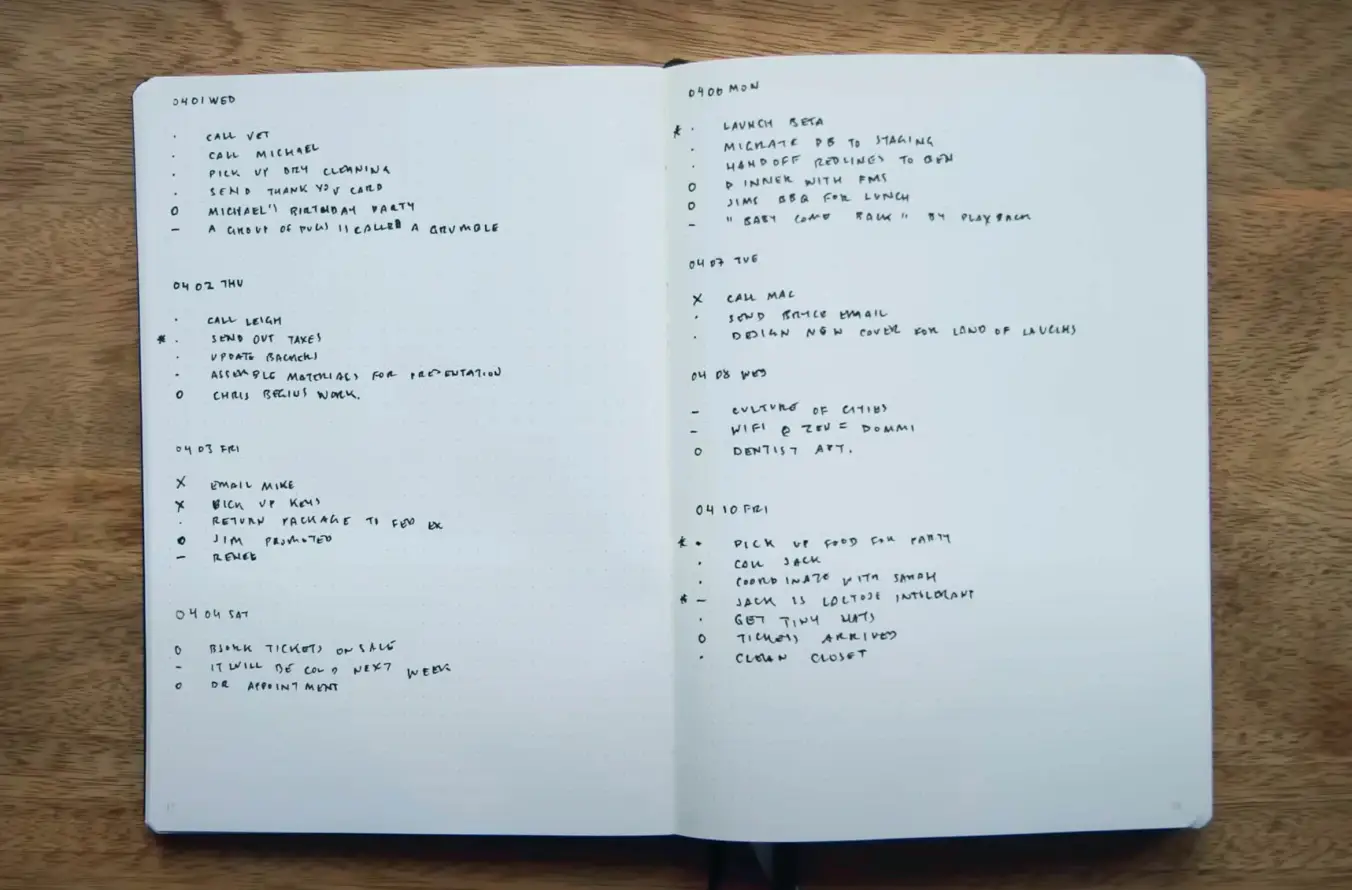 0401 WED
· CALL VET
· CALL MICHAEL
· PICK UP DRY CLEANING
· SEND THANK YOU CARD
O MICHAEL'S BIRTHDAY PARTY
– A GROUP OF PUGS IS CALLED A GRUMBLE
04 02 THU
· CALL LEIGH
* · SEND OUT TAXES
· UPDATE BACKERS
· ASSEMBLE MATERIALS FOR PRESENTATION
O CHRIS BEGINS WORK.
04 03 FRI
X EMAIL MIKE
X PICK UP KEYS
· RETURN PACKAGE TO FED EX
O JIM PROMOTED
– RENEE
04 04 SAT
O BJORK TICKETS ON SALE
– IT WILL BE COLD NEXT WEEK
O DR APPOINTMENT
0406 MON
* · LAUNCH BETA
· MIGRATE DB TO STAGING
· HANDOFF REDLINES TO BEN
O DINNER WITH FMS
O JIMS BBQ FOR LUNCH
– "BABY COME BACK" BY PLAYBACK
04 07 TUE
X CALL MAC
· SEND BRYCE EMAIL
· DESIGN NEW COVER FOR LAND OF LAUGHS
04 08 WED
– CULTURE OF CITIES
– WIFI @ = DOMMI
O DENTIST APT.
04 10 FRI
* · PICK UP FOOD FOR PARTY
· CALL JACK
· COORDINATE WITH SANDY
* – JACK IS LACTOSE INTOLERANT
· GET TINY HATS
O TICKETS ARRIVED
· CLEAN CLOSET